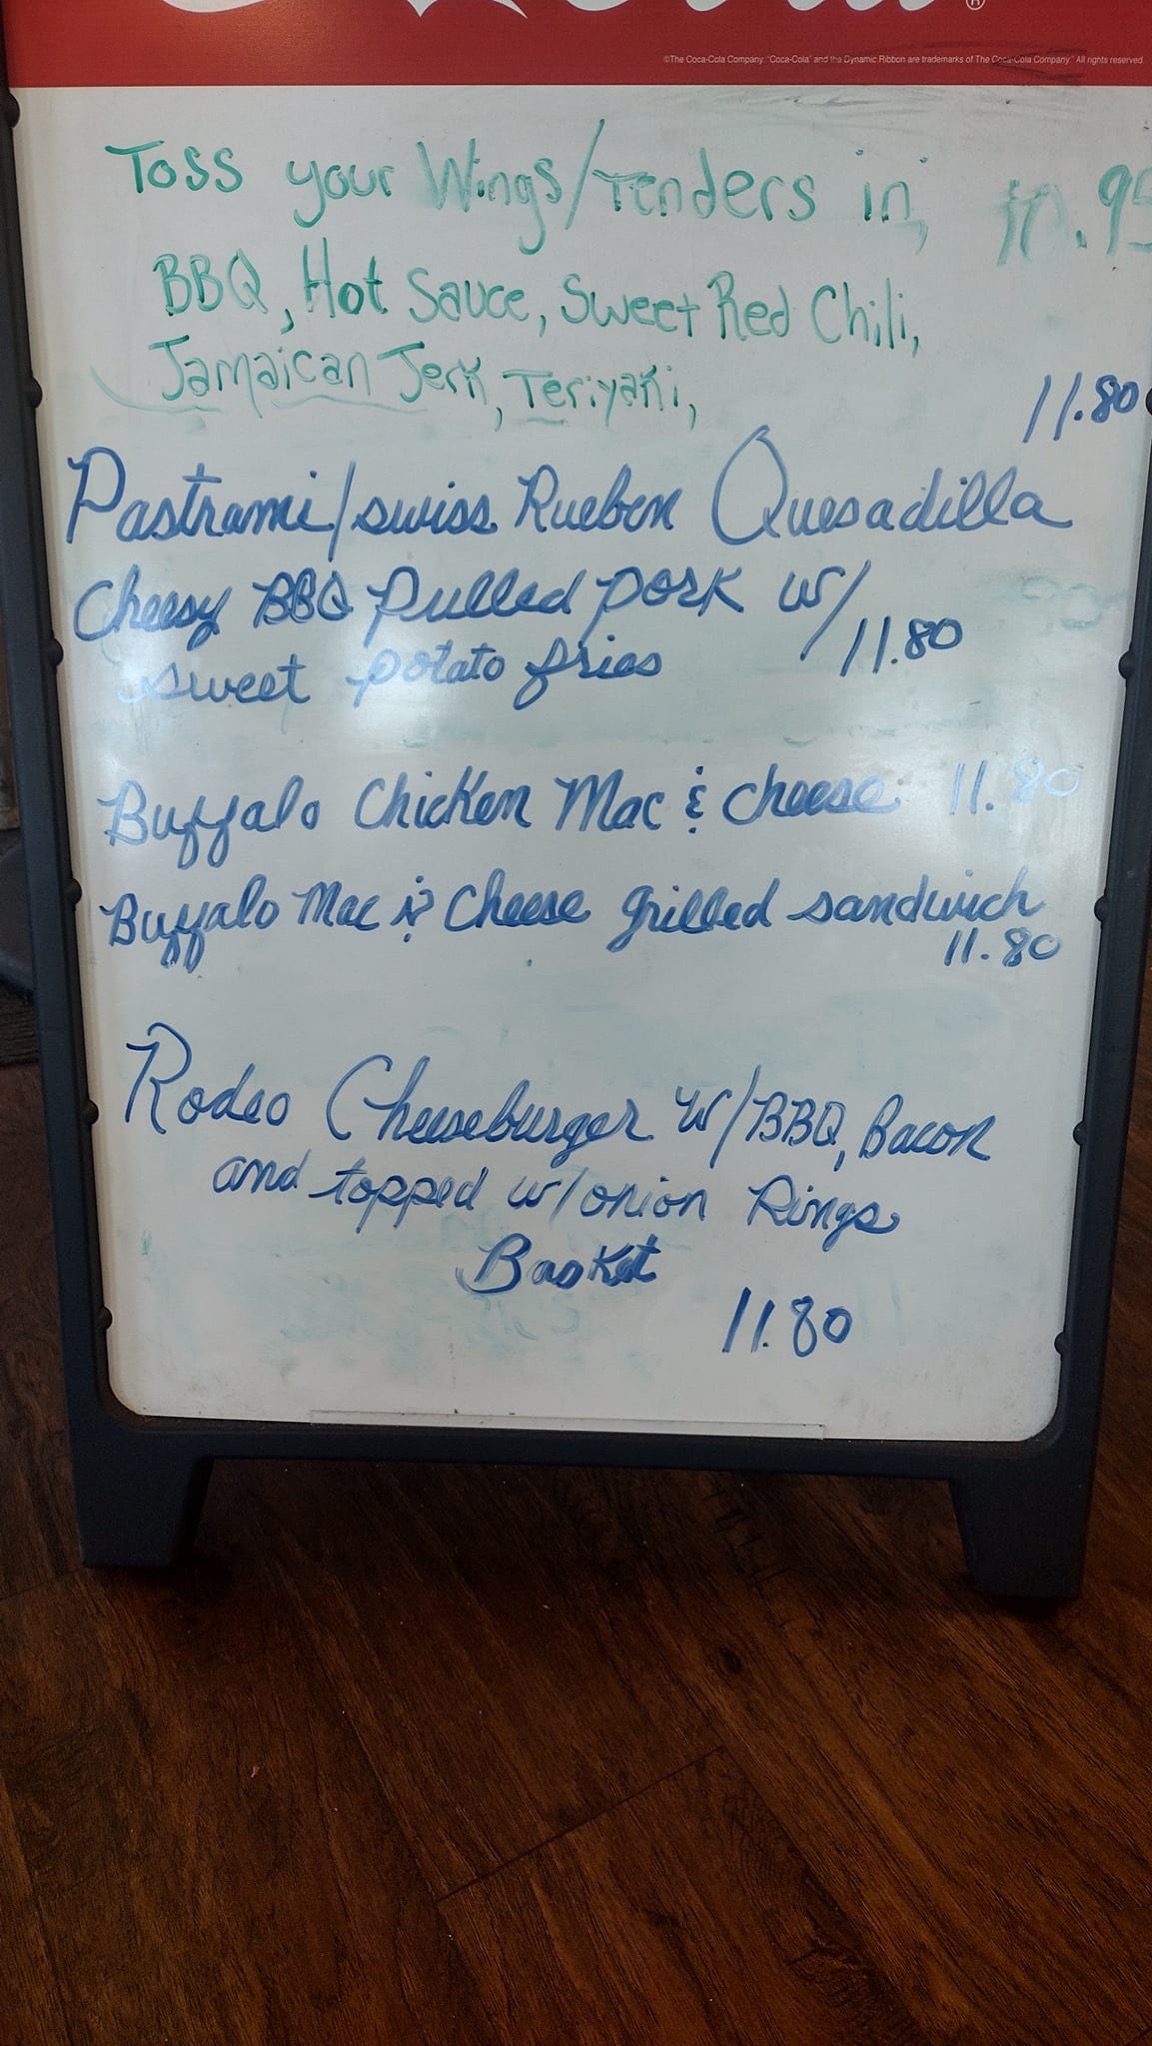 ®
©The Coca-Cola Company. "Coca-Cola" and the Dynamic Ribbon are trademarks of The Coca-Cola Company." All rights reserved.
Toss your Wings/Tenders in, 10.95
BBQ, Hot Sauce, Sweet Red Chili,
Jamaican Jerk, Teriyaki,
11.80
Pastrami/swiss Rueben Quesadilla
Cheesy BBQ Pulled pork w/
sweet potato fries 11.80
Buffalo Chicken Mac & cheese 11.80
Buffalo Mac & Cheese grilled sandwich
11.80
Rodeo Cheeseburger w/BBQ, Bacon
and topped w/onion Rings
Basket
11.80